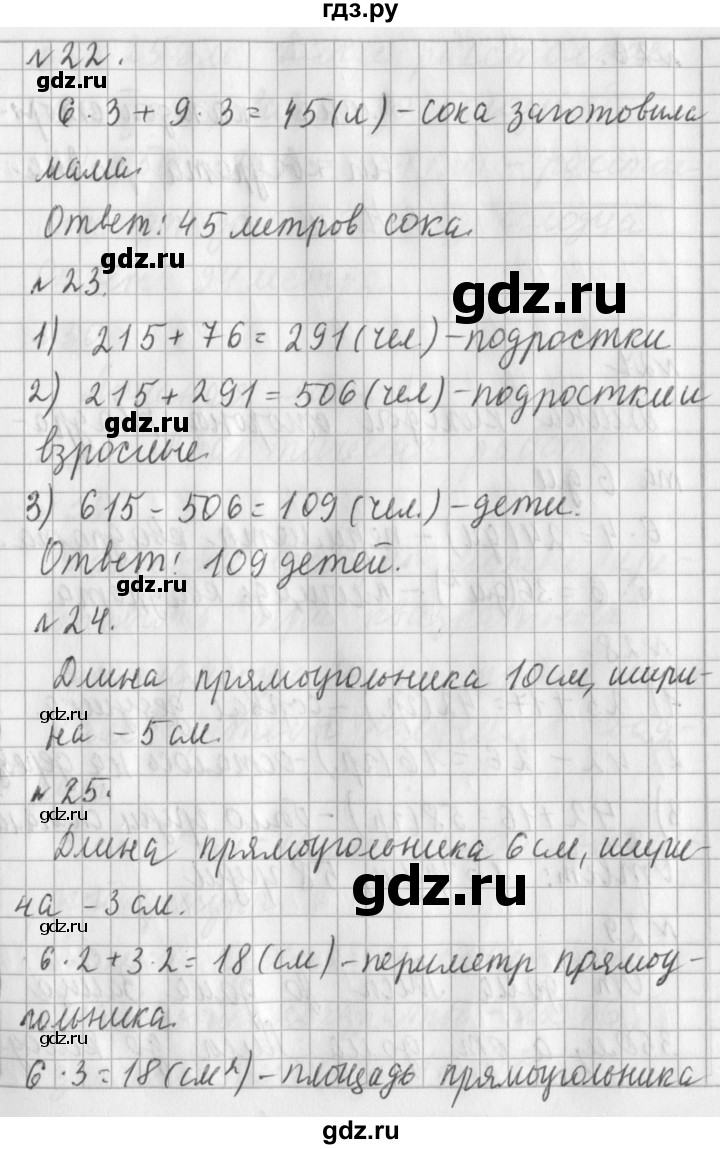 гдз.ру
№22.
6·3+9·3=45(л)-сока заготовила
мама.
Ответ: 45 метров сока.
gdz.ru
№23.
gdz.ru
1) 215+76=291(чел.)-подростки
2) 215+291=506(чел)-подростки и
gdz.ru
взрослые.
3) 615-506=109(чел.)-дети.
Ответ: 109 детей.
gdz.ru
№24.
Длина прямоугольника 10см, шири-
gdz.ru
на - 5см.
№25.
gdz.ru
Длина прямоугольника 6см, шири-
gdz.ru
на - 3см.
gdz.ru
6·2+3·2=18(см)-периметр прямоу-
гольника.
gdz.ru
6·3=18(см²)-площадь прямоугольника
gdz.ru